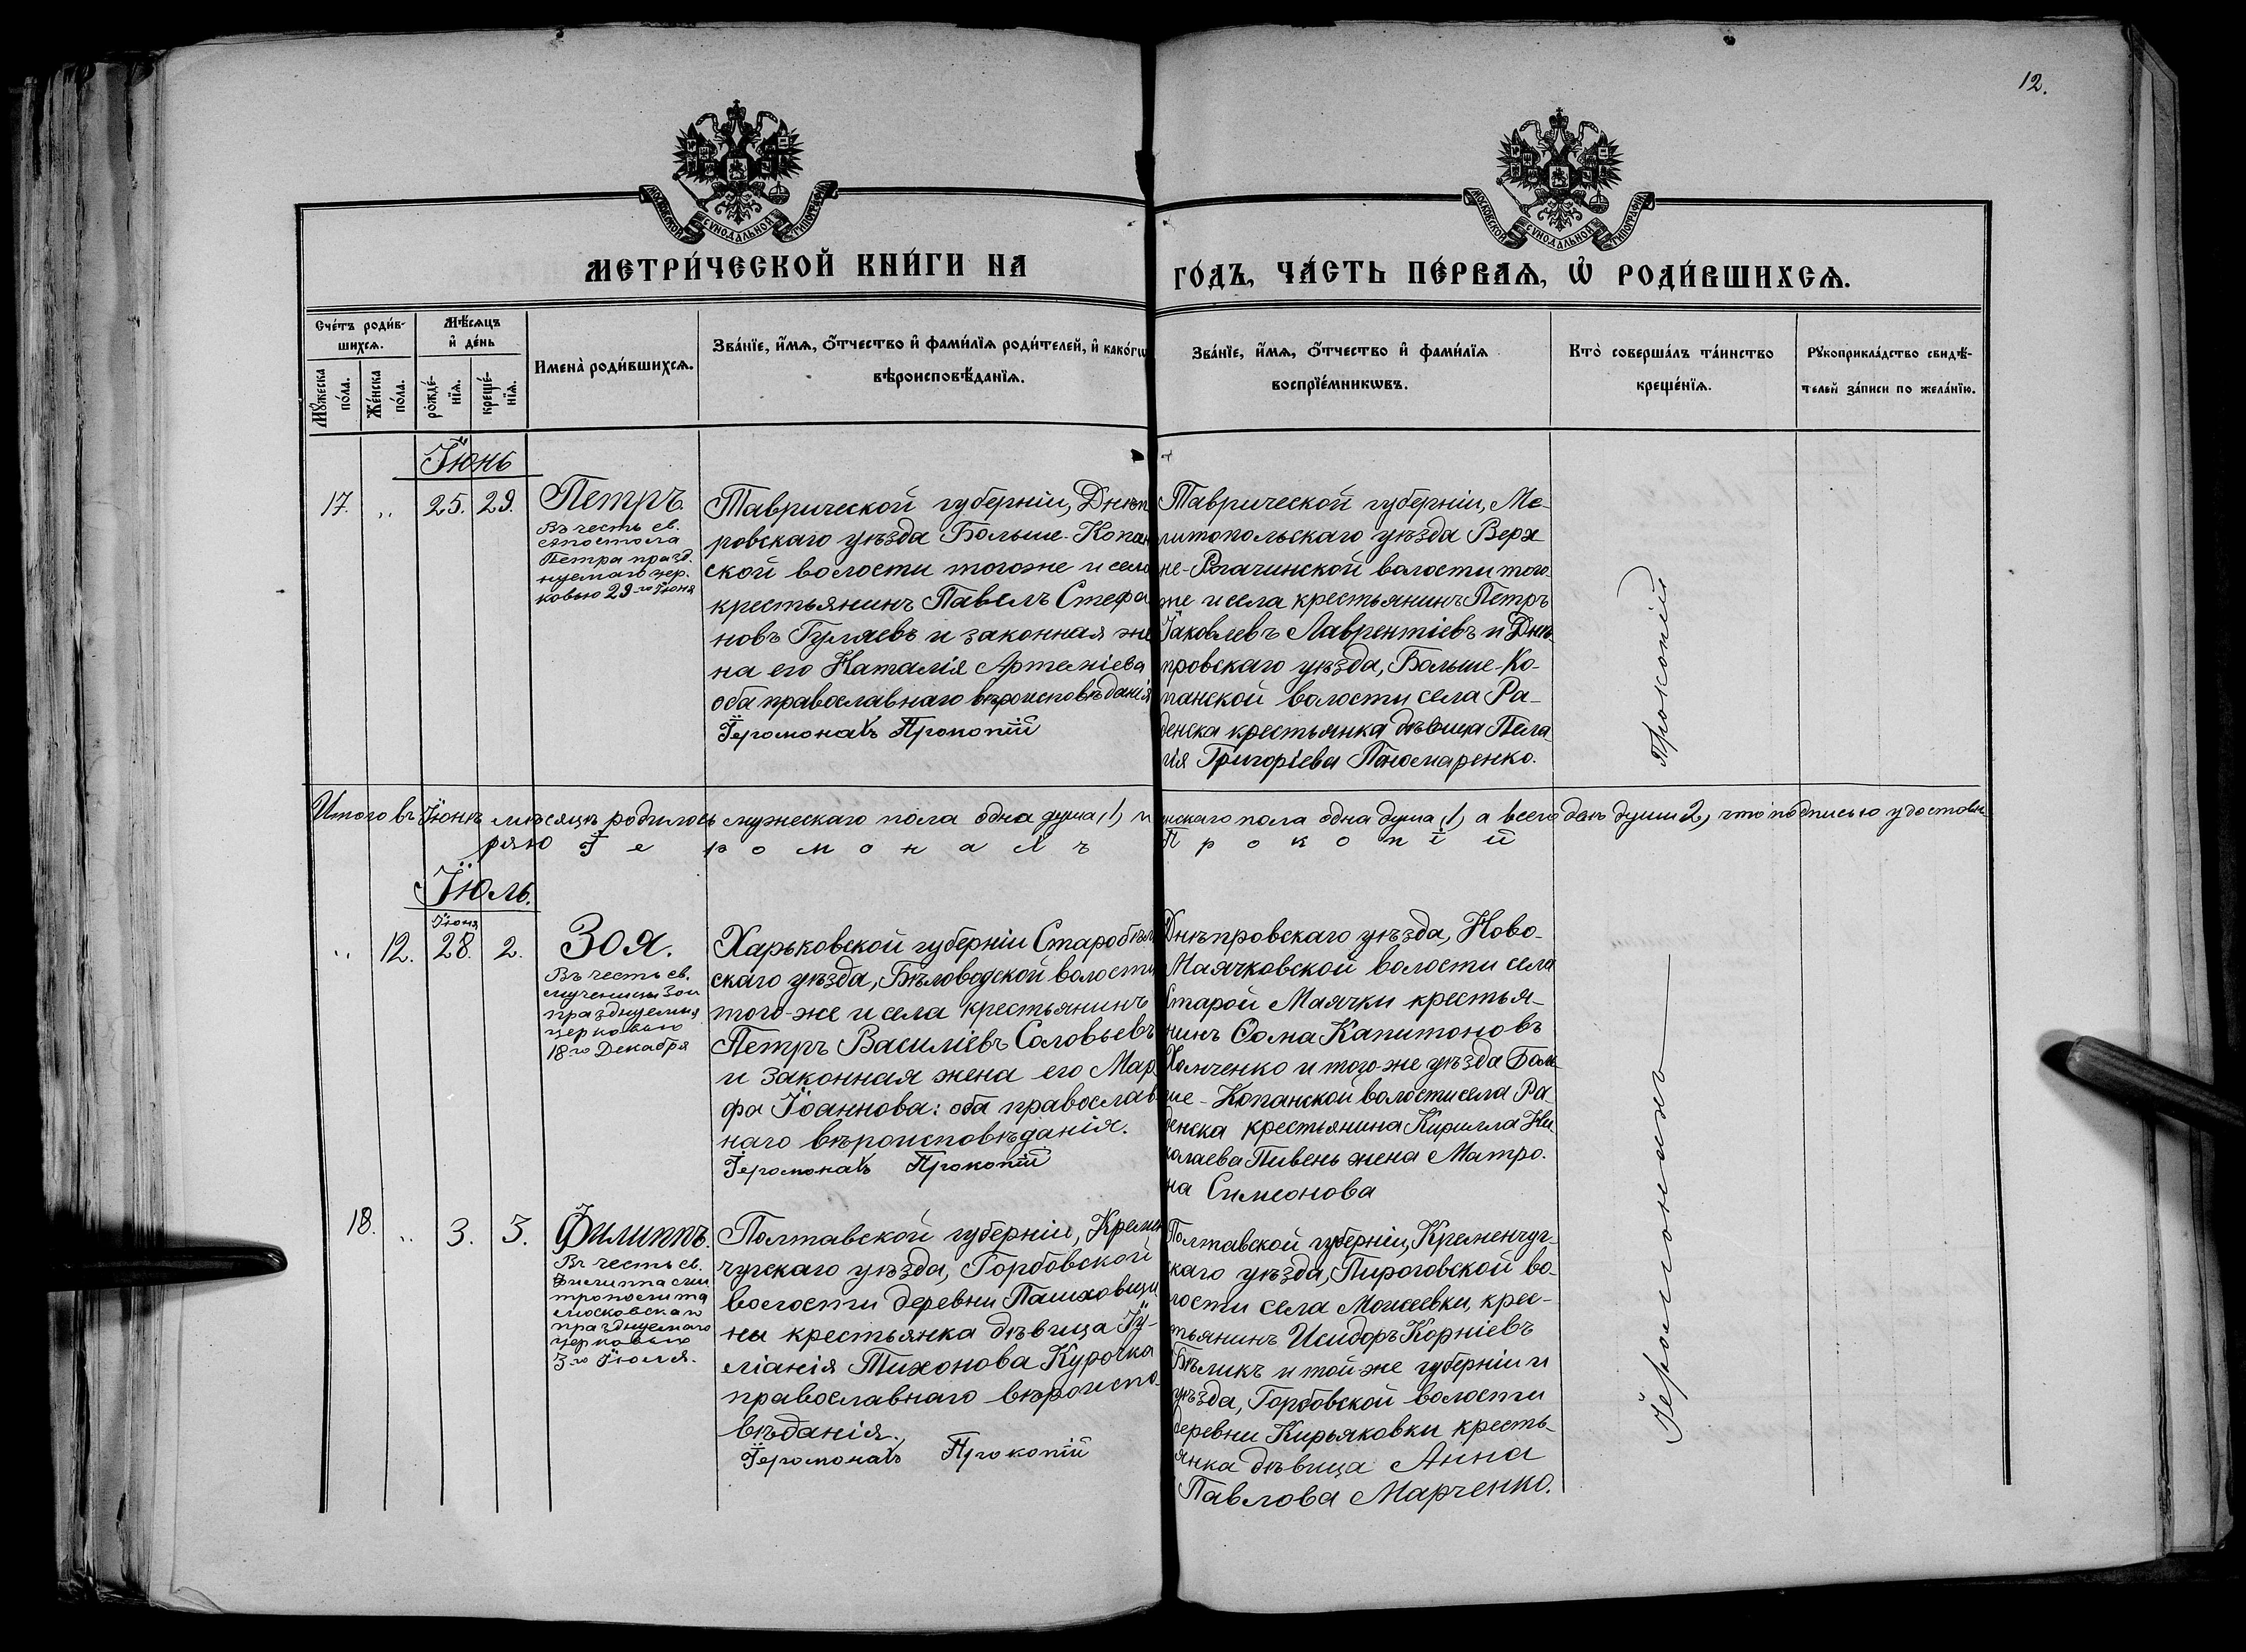 12.
МОСКОВСКОЙ СѴНОДАЛЬНОЙ ТИПОГРАФІИ
МОСКОВСКОЙ СѴНОДАЛЬНОЙ ТИПОГРАФІИ
МЕТРИ́ЧЕСКОЙ КНИ́ГИ НА
ГО́ДЪ, ЧА́СТЬ ПЕ́РВАѦ, Ѡ҆ РОДИ́ВШИХСѦ.
Сче́тъ роди́в-
шихсѧ.
Мꙋ́жеска
по́ла.
Же́нска
по́ла.
Мѣ́сѧцъ
и҆ де́нь
рожде́-
нїѧ.
креще́-
нїѧ.
Имена̀ роди́вшихсѧ.
Зва́нїе, и҆́мѧ, ѻ҆́тчество и҆ фами́лїѧ роди́телей, и҆ како́гѡ
вѣроисповѣ́данїѧ.
Зва́нїе, и҆́мѧ, ѻ҆́тчество и҆ фами́лїѧ
воспрїе́мникѡвъ.
Кто̀ соверша́лъ та́инство
креще́нїѧ.
Рꙋкоприкла́дство свидѣ́-
телей за́писи по жела́нїю.
Іюнь
17. „ 25. 29.
Петръ.
Въ честь св.
Апостола
Петра празд.
нуемаго цер.
ковью 29-го Іюня
Таврической губерніи, Днѣп
ровскаго уѣзда Больше-Копан
ской волости того же и села
крестьянинъ Павелъ Стефа
новъ Гуляевъ и законная же
на его Наталія Артеміева
оба православнаго вѣроисповѣданія
Іеромонахъ Прокопій
Таврической губерніи, Ме-
литопольскаго уѣзда Верх
не-Рогачинской волости того-
же и села крестьянинъ Петръ
Іаковлевъ Лаврентіевъ и Днѣ-
провскаго уѣзда, Больше-Ко-
панской волости села Ра-
денска крестьянка дѣвица Пела
гія Григоріева Паномаренко.
Прокопій
Итого въ Іюнѣ мѣсяцѣ родилось мужескаго пола одна душа (1) и
нскаго пола одна душа (1) а всего двѣ души 2, что подписью удостовѣ
ряю Іеромонахъ
Прокопій
Іюль.
Іюня
„ 12. 28. 2.
Зоя.
Въ честь св.
мученицы Зои
празднуемыя
церковью
18-го Декабря
Харьковской губерніи Старобѣль
скаго уѣзда, Бѣловодской волости
того-же и села крестьянинъ
Петръ Василіевъ Соловьевъ
и законная жена его Мар
фа Іоаннова: оба православ
наго вѣроисповѣданія.
Іеромонахъ Прокопій
Днѣпровскаго уѣзда, Ново-
Маячковской волости села
Старой Маячки крестья-
нинъ Ѳома Капитоновъ
Хомченко и того-же уѣзда Боль
ше-Копанской волости села Ра
денска крестьянина Кирилла Ни
колаева Пивень жена Матро-
на Симеонова
18. „ 3. 3.
Филиппъ.
Въ честь св.
Филиппа ми
трополита
московскаго
празднуемаго
церковью
3-го Іюля.
Полтавской губерніи, Кремен
чугскаго уѣзда, Горбовской
волости деревни Пашковщи
ны крестьянка дѣвица Іу-
ліанія Тихонова Курочка
православнаго вѣроиспо-
вѣданія.
Іеромонахъ Прокопій
Полтавской губерніи, Кременчуг-
скаго уѣзда, Пироговской во-
лости села Моисеевки, крес-
тьянинъ Исидоръ Корніевъ
Бѣликъ и той-же губерніи и
уѣзда, Горбовской волости
деревни Кирьяковки кресть-
янка дѣвица Анна
Павлова Марченко.
Іеромонахъ